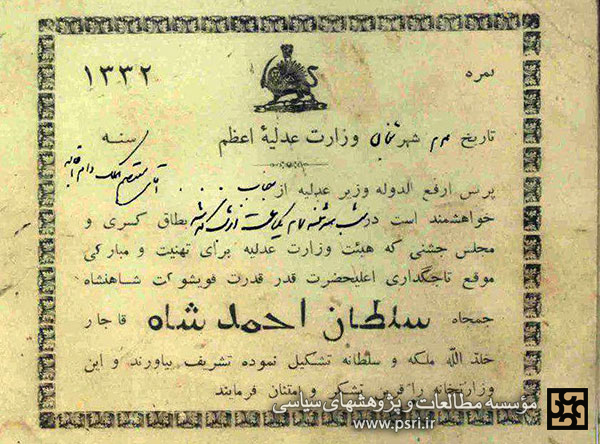 نمره
۱۳۳۲
تاریخ شهر وزارت عدلیهٔ اعظم سنه
پرنس ارفع الدوله وزیر عدلیه از جناب . . . . آقای دام اقباله
خواهشمند است در شب بطاق کسری و
مجلس جشنی که هیئت وزارت عدلیه برای تهنیت و مبارکی
موقع تاجگذاری اعلیحضرت قدر قدرت قویشوکت شاهنشاه
جمجاه سلطان احمد شاه قاجار
خلد الله ملکه و سلطانه تشکیل نموده تشریف بیاورند و این
وزارتخانه را قرین تشکر و امتنان فرمایند
مؤسسه مطالعات و پژوهشهای سیاسی
www.psri.ir